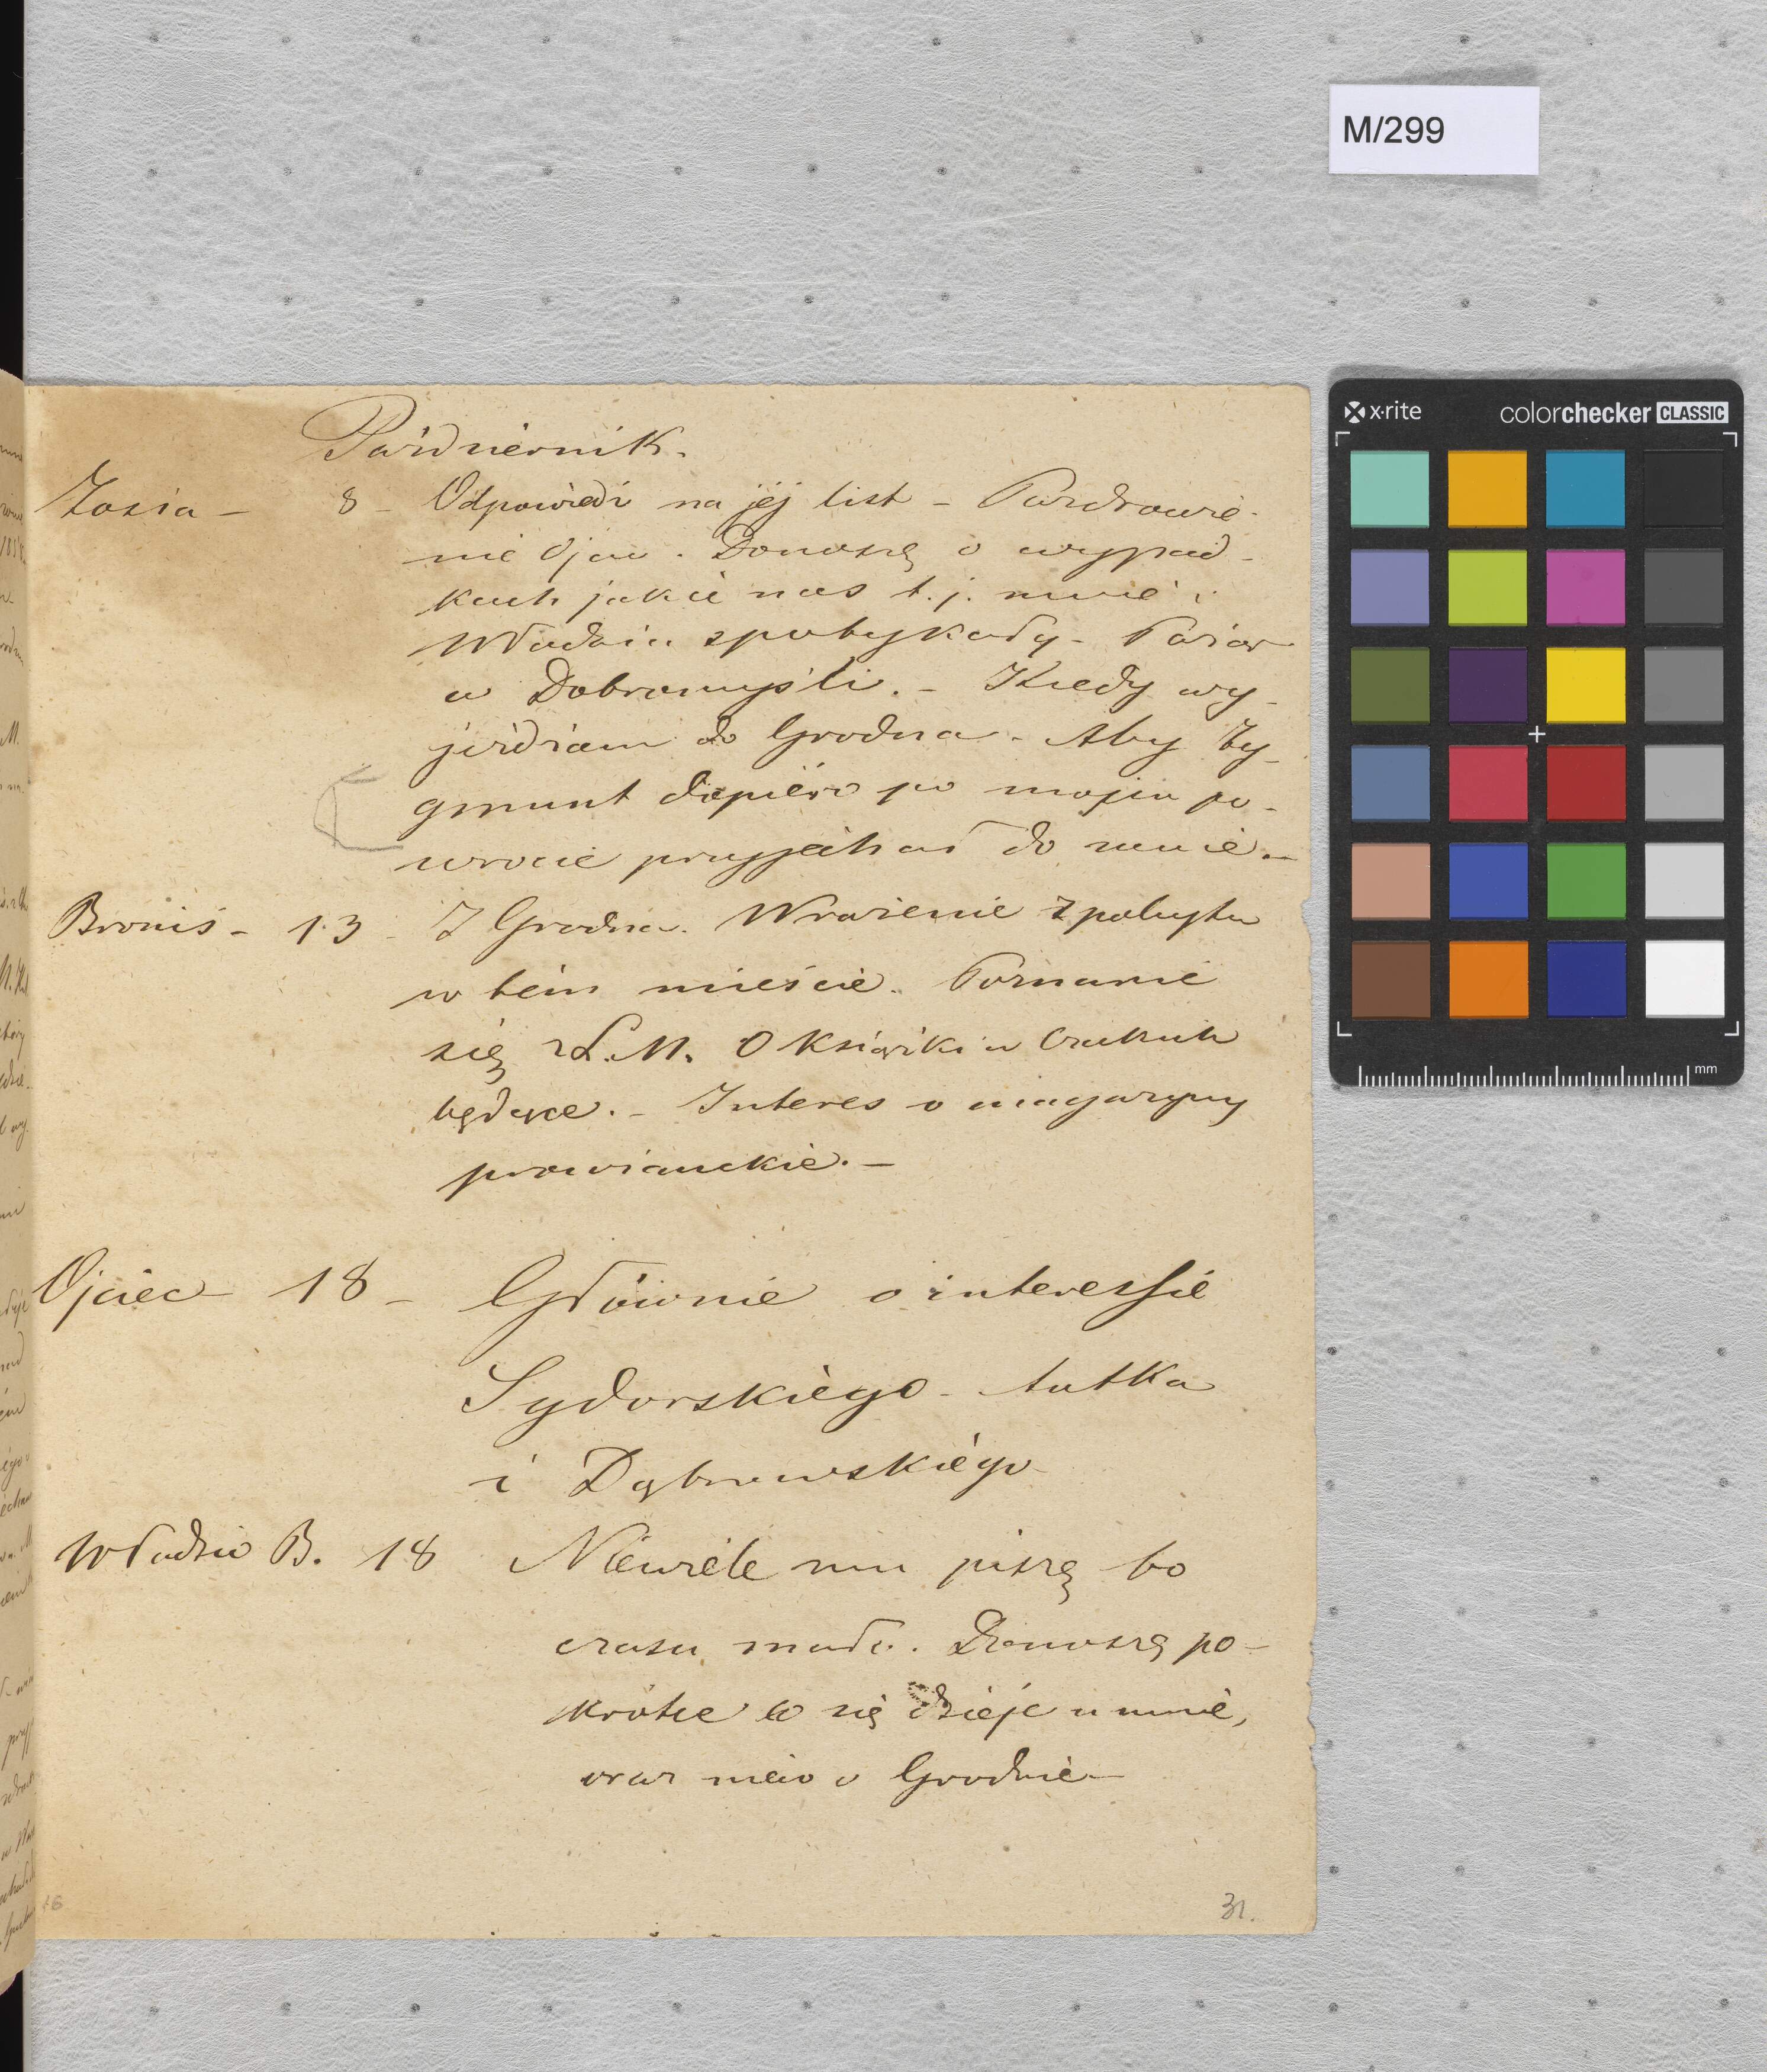 M/299
x·rite colorchecker CLASSIC
mm
Paździérnik.
Zosia – 8 – Odpowiedź na jéj list – Pozdrowie-
nie Ojca. Donoszę o wypad-
kach jakie nas t. j. mnie i
Władzia spotykały – Pożar
w Dobromyśli. – Kiedy wy-
jeżdżam do Grodna – Aby Zy-
gmunt dopiéro po mojem po-
wrocie przyjechał do mnie. –
Broniś – 13 – Z Grodna. Wrażenie z pobytu
w tém mieście. Poznanie
się z L. M. O książki w
będące. – Interes o magazyny
prowianckie. –
Ojciec – 18 – Głównie o interessie
Sydorskiego – Lutka
i Dąbrowskiégo
Władzio B. 18 Niewiéle mu piszę bo
czasu mało. Donoszę po-
krótce co się dzieje u mnie,
oraz nieco o Grodnie –
31.